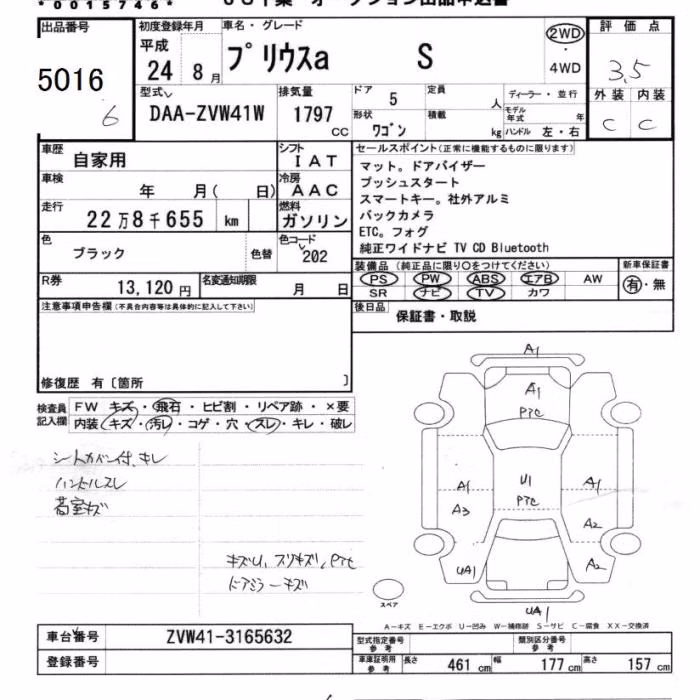 *0015746*
出品番号
5016
6
初度登録年月
平成
24 8月
車名・グレード
プリウスa S
2WD
・
4WD
評価点
3.5
外装 内装
C C
型式
DAA-ZVW41W
排気量
1797
cc
ドア 5
定員 人
ディーラー・並行
形状 ワゴン
積載 kg
モデル年式 年
ハンドル 左・右
車歴
自家用
シフト
IAT
車検
年 月( 日)
冷房
AAC
走行
22万8千655 km
燃料
ガソリン
色
ブラック
色替
色コード
202
R券
13,120円
名変通知期限
月 日
セールスポイント(正常に機能するものに限ります)
マット。ドアバイザー
プッシュスタート
スマートキー。社外アルミ
バックカメラ
ETC。フォグ
純正ワイドナビ TV CD Bluetooth
装備品(純正品に限り○をつけてください)
PS PW ABS エアB AW
SR ナビ TV カワ
新車保証書
有・無
後日品
保証書・取説
注意事項申告欄(不具合内容等は具体的に記入して下さい)
修復歴 有〔箇所 〕
検査員
記入欄
FW キズ・飛石・ヒビ割・リペア跡・×要
内装 キズ・汚レ・コゲ・穴・スレ・キレ・破レ
シートカバー付、キレ
ハンドルスレ
荷室キズ
キズU、スリキズ、Pтє
ドアミラーキズ
A1
A1
Pтє
U1
Pтє
A1
A3
A1
A2
UA1
A2
UA1
スペア
A-キズ E-エクボ U-凹み W-補修跡 S-サビ C-腐食 XX-交換済
車台番号
ZVW41-3165632
登録番号
型式指定番号
参考
類別区分番号
参考
車庫証明用
参考
長さ 461 cm
幅 177 cm
高さ 157 cm